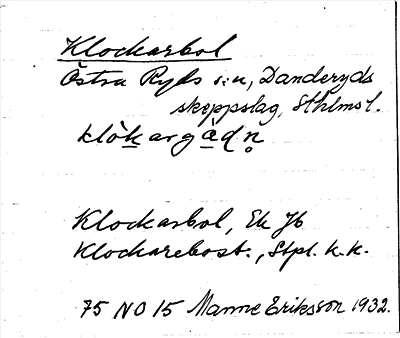 Klockarbol
Östra Ryds s:n, Danderyds
skeppslag, Sthlms l.
klòkargàdn̥
Klockarbol, Ek Jb
Klockarebost., Stpl. k.k.
75 NO 15 Manne Eriksson 1932.